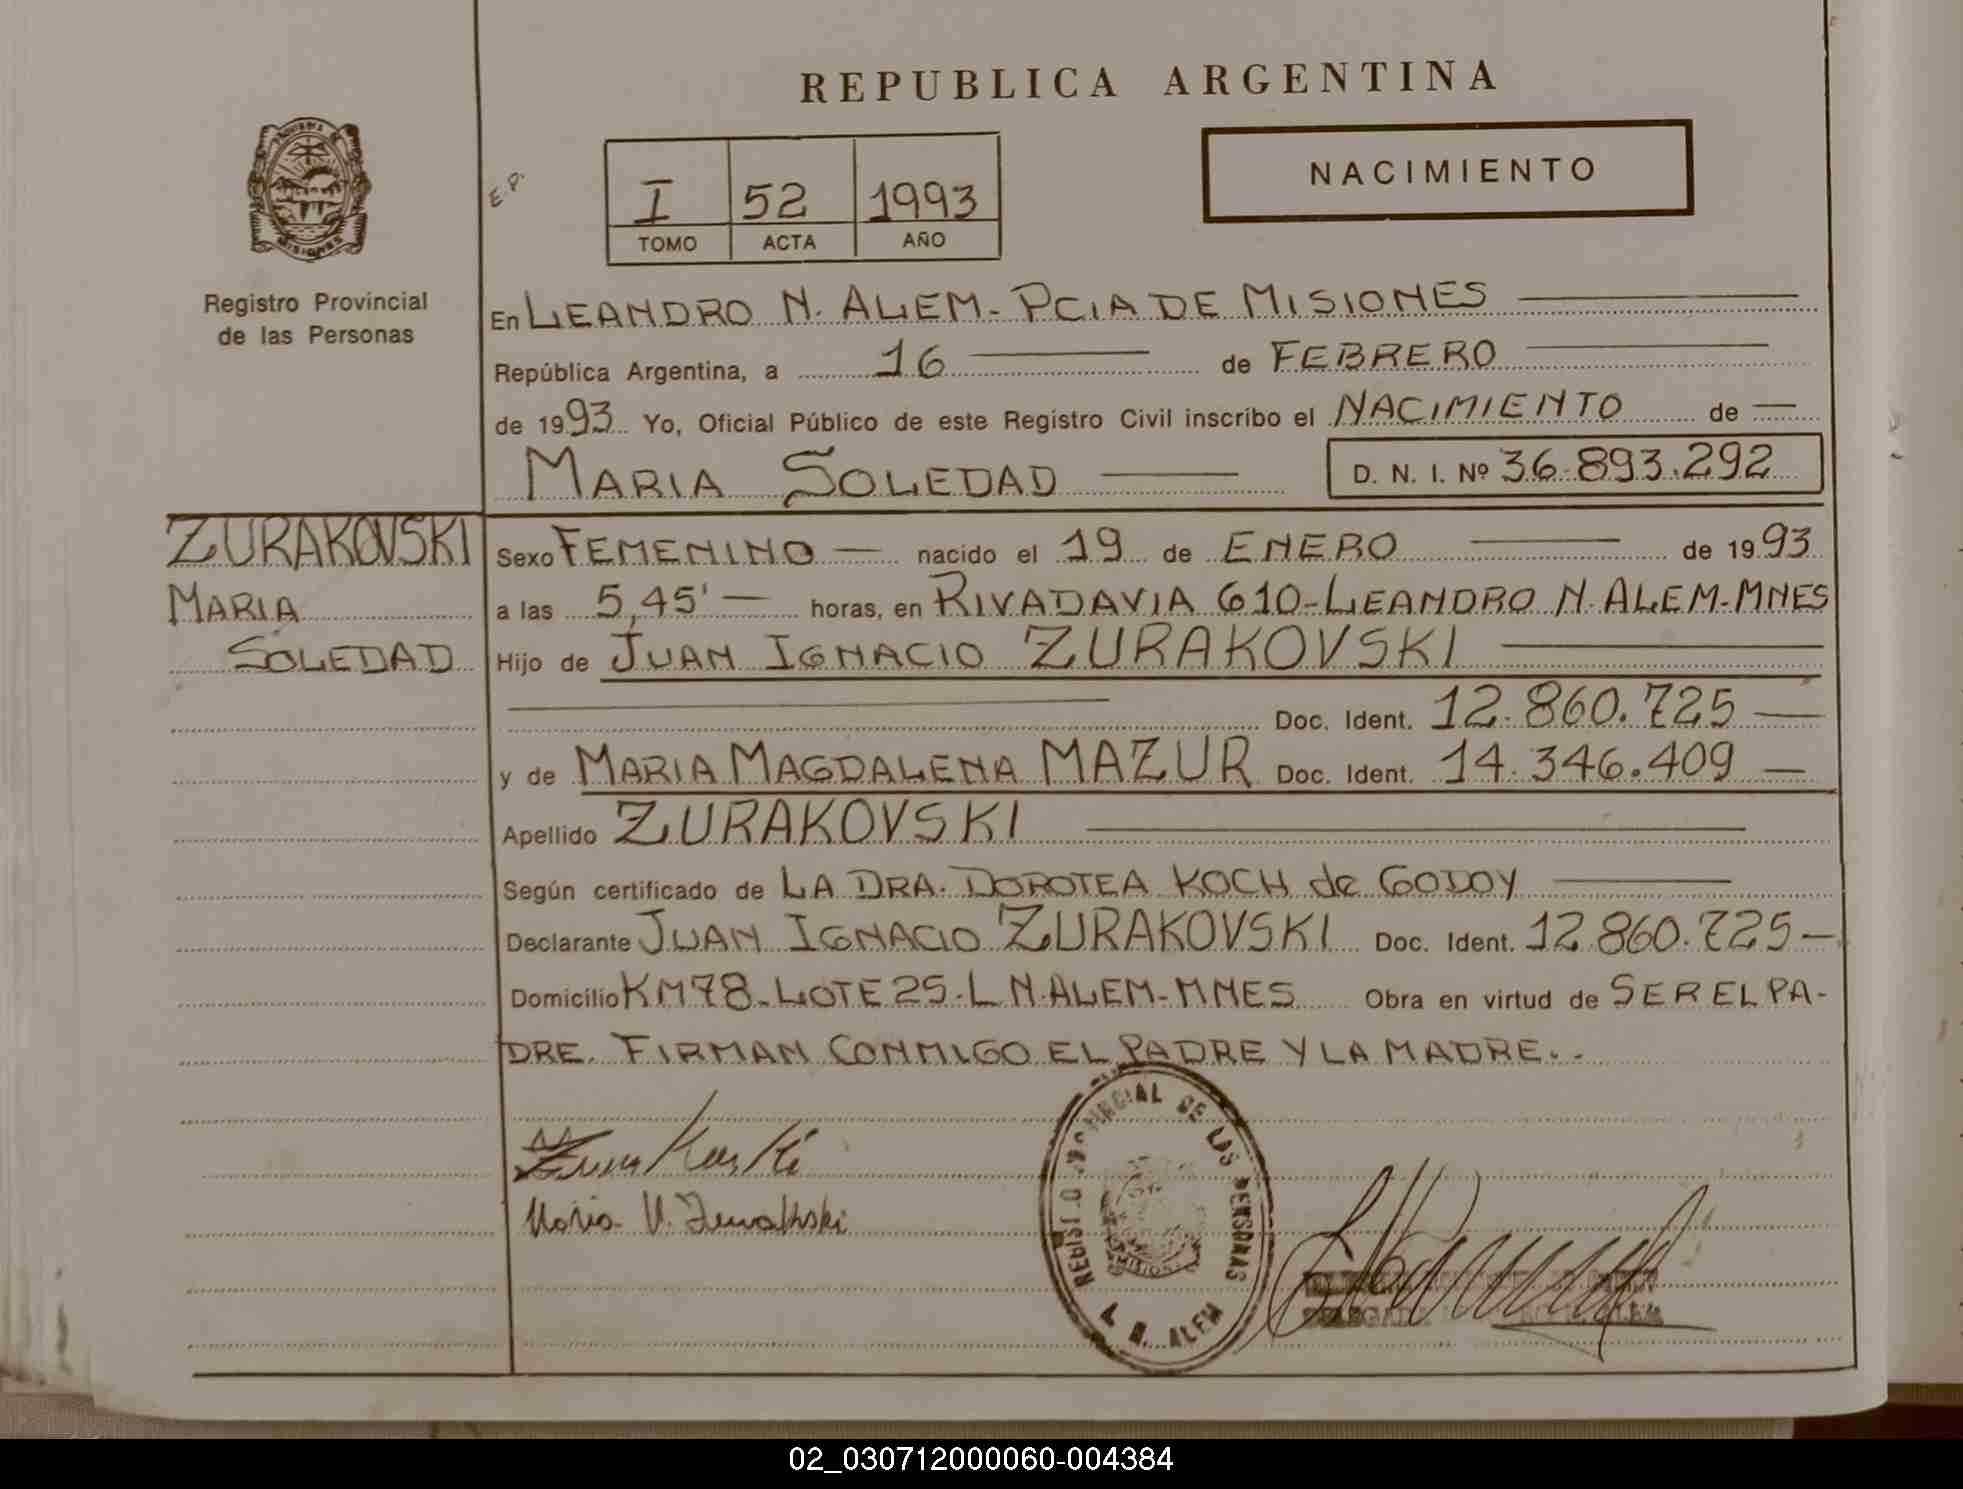 REPUBLICA ARGENTINA
PROVINCIA DE
MISIONES
Registro Provincial
de las Personas
E.P.
I 52 1993
TOMO ACTA AÑO
NACIMIENTO
En LEANDRO N. ALEM - PCIA DE MISIONES
República Argentina, a 16 de FEBRERO
de 1993 Yo, Oficial Público de este Registro Civil inscribo el NACIMIENTO de —
MARIA SOLEDAD D. N. I. Nº 36.893.292
ZURAKOVSKI
MARIA
SOLEDAD
Sexo FEMENINO — nacido el 19 de ENERO de 1993
a las 5,45' — horas, en RIVADAVIA 610-LEANDRO N. ALEM-MNES
Hijo de JUAN IGNACIO ZURAKOVSKI
Doc. Ident. 12.860.725 —
y de MARIA MAGDALENA MAZUR Doc. Ident. 14.346.409 —
Apellido ZURAKOVSKI
Según certificado de LA DRA. DOROTEA KOCH de GODOY
Declarante JUAN IGNACIO ZURAKOVSKI Doc. Ident. 12.860.725 —
Domicilio KM78-LOTE 25-L N.ALEM-MNES Obra en virtud de SER EL PA-
DRE. FIRMAN CONMIGO EL PADRE Y LA MADRE.-
REGISTRO PROVINCIAL DE LAS PERSONAS
MISIONES
L. N. ALEM
02_030712000060-004384